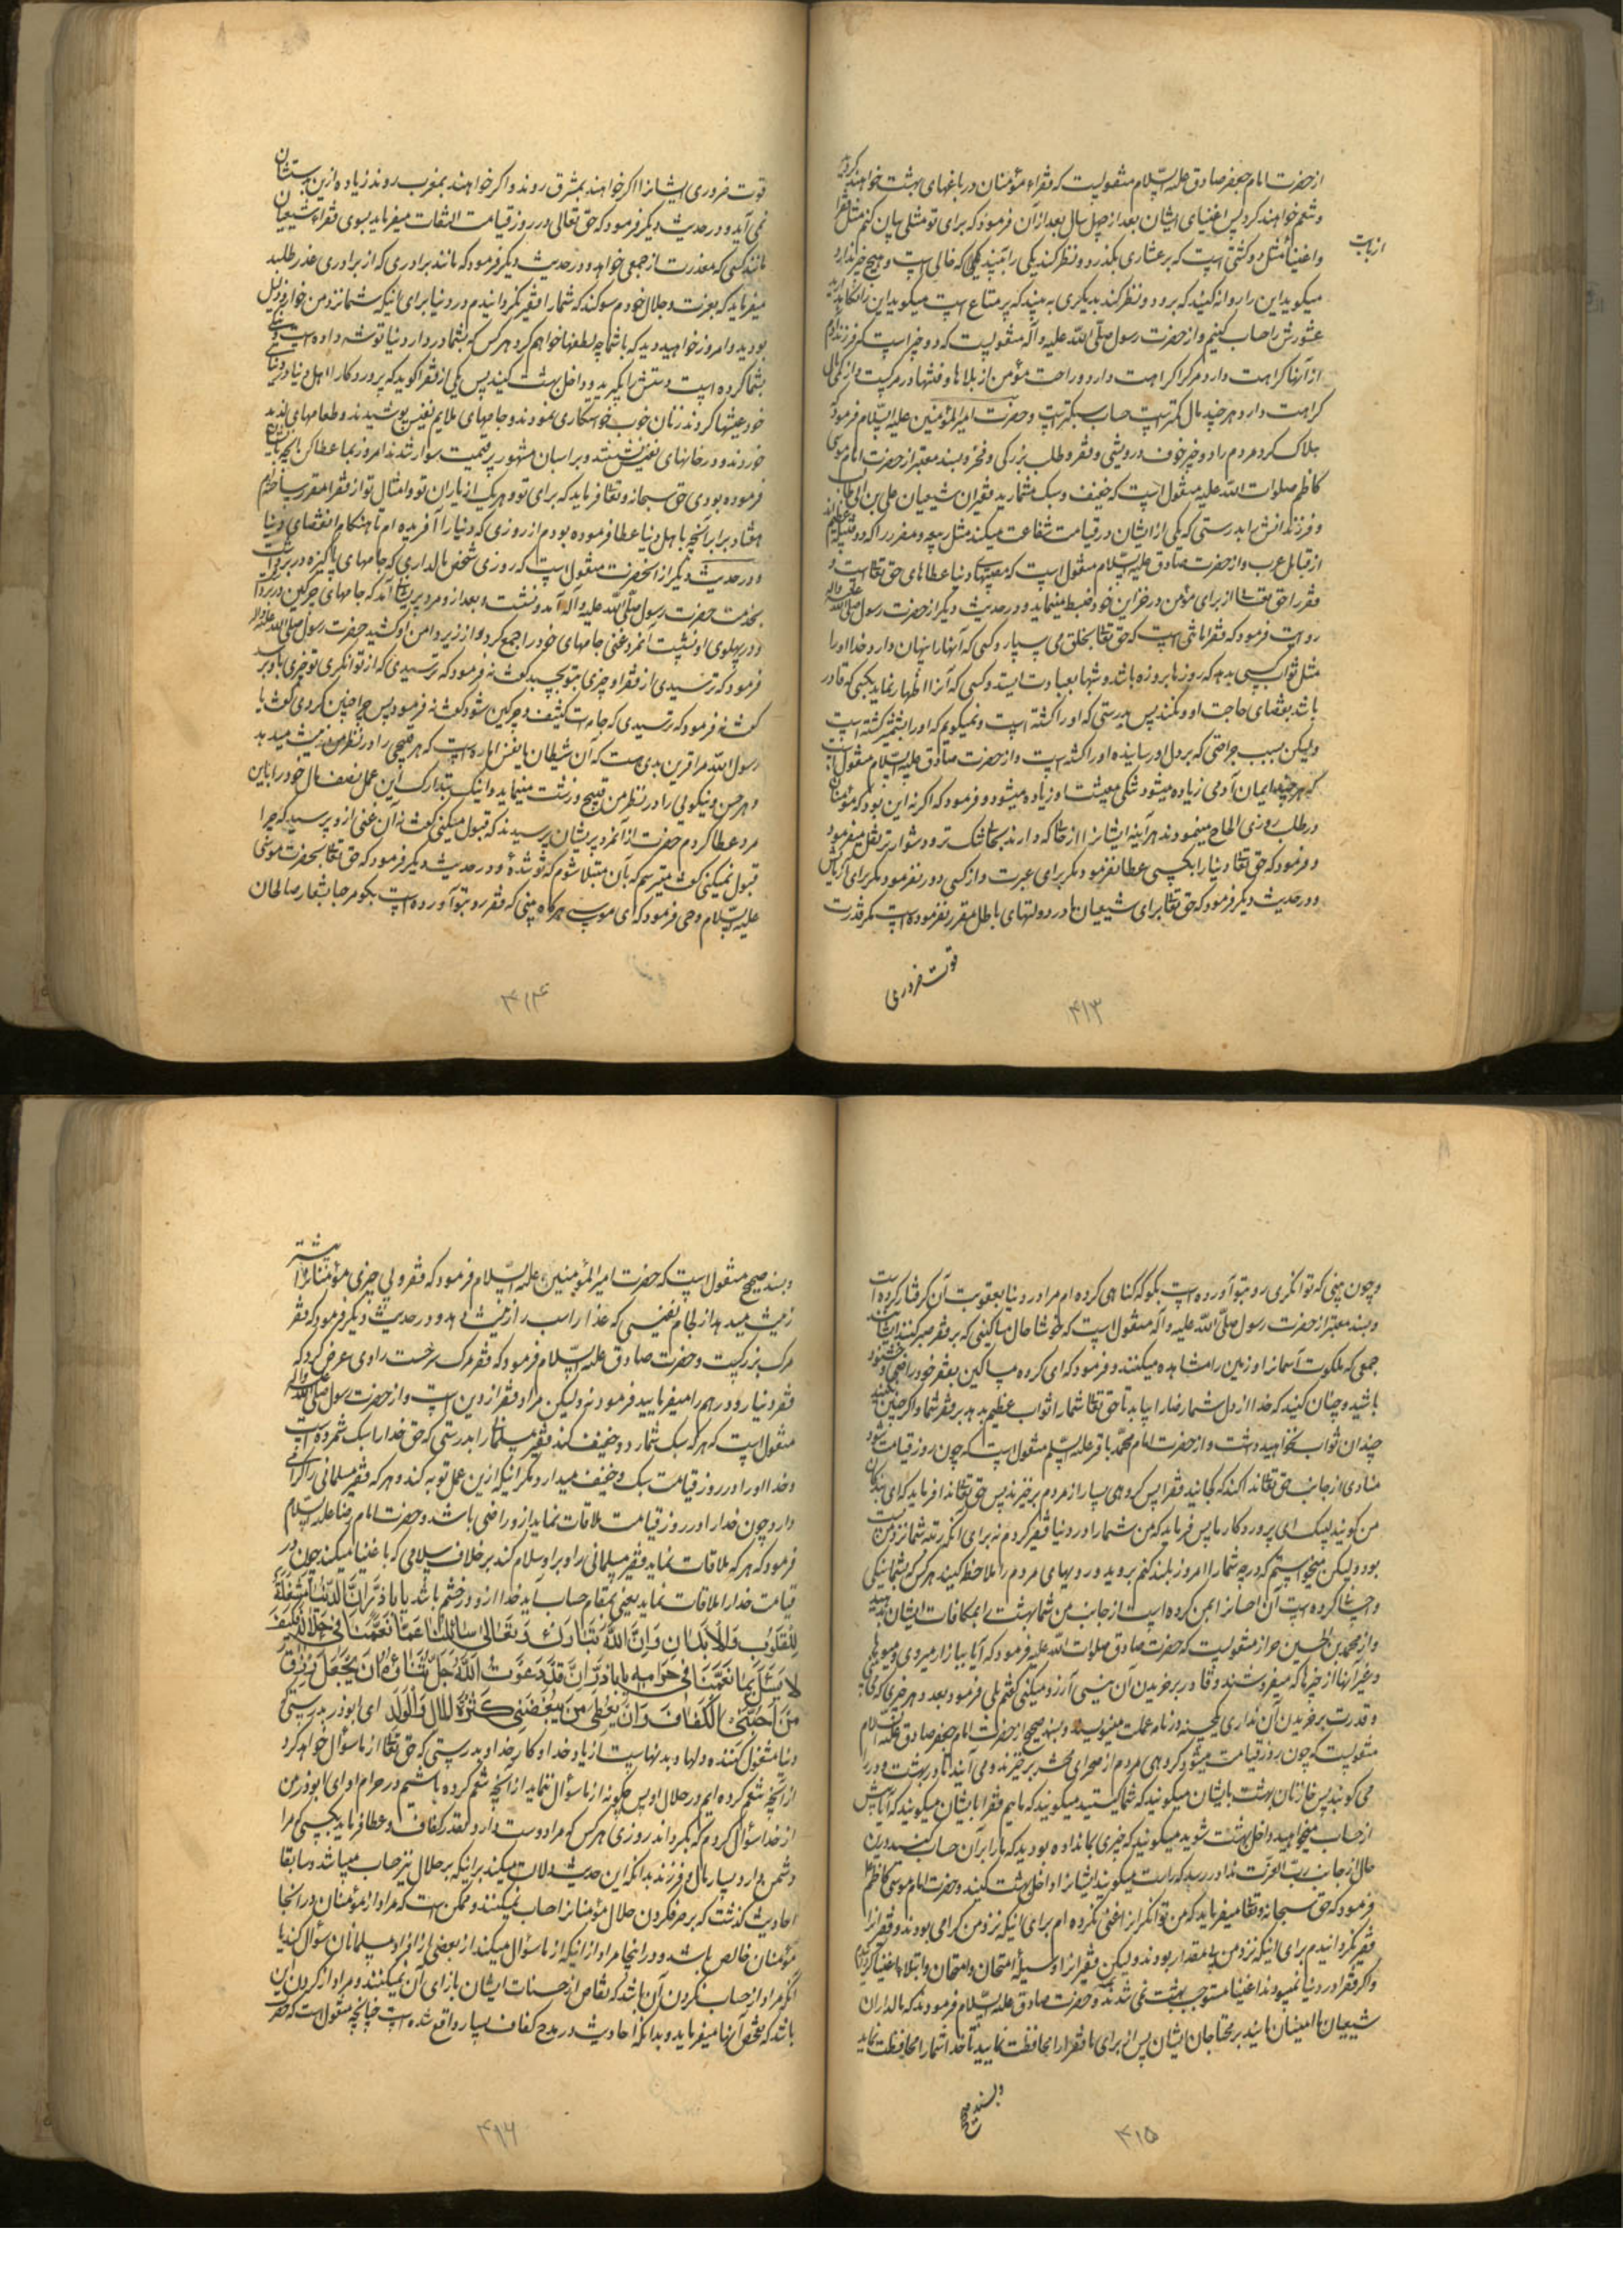 از حضرت امام جعفر صادق علیه السلام منقولست که فقراء مؤمنان در باغهای بهشت خواهند گردید
و تنعم خواهند کرد پس اغنیای ایشان بعد از چهل سال بعد از آن فرمود که برای تو مثلی بیان کنم مثل فقرا
از بابت
و اغنیا مثل دو کشتی است که بر عشاری بگذرد و نظر کند یکی را ببیند که خالی است و هیچ چیز ندارد
میگوید این را روانه کنید که برود و نظر کند بدیگری به بیند که پر متاع است میگوید این را نگاهدارید
عشورش را حساب کنیم و از حضرت رسول صلی الله علیه و آله منقولیست که دو چیز است که فرزند آدم
از آنها کراهت دارد مرک را کراهت دارد و راحت مؤمن از بلاها و فتنها در مرکیست و از کمی مال
کراهت دارد و هر چند مال کمتر است حساب سبکتر است و حضرت امیر المؤمنین علیه السلام فرمود که
هلاک کرد مردم را دو چیز خوف درویشی و فقر و طلب بزرگی و فخر و بسند معتبر از حضرت امام موسی
کاظم صلوات الله علیه منقول است که خفیف و سبک مشمارید فقیران شیعیان علی بن ابی طالب
و فرزندانش را بدرستی که یکی از ایشان در قیامت شفاعت میکند مثل ربیعه و مضر را که دو قبیله عظیم اند
از قبایل عرب و از حضرت صادق علیه السلام منقول است که مصیبتها در دنیا عطاهای حق تعالی است و
فقر را حق تعالی از برای مؤمن در خزاین خود ضبط مینماید و در حدیث دیگر از حضرت رسول صلی الله علیه و آله
روایت فرمود که فقر امانتی است که حق تعالی بخلق می سپارد و کسی که آنها را پنهان دارد خدا او را
مثل ثواب کسی بدهد که روزها بروزه باشد و شبها بعبادت ایستد و کسی که آنرا اظهار نماید بکسی که قادر
باشد بقضای حاجت او و نکند پس بدرستی که او را کشته است و نمیگویم که او را بشمشیر کشته است
ولیکن بسبب جراحتی که بر دل او رسانیده او را کشته است و از حضرت صادق علیه السلام منقول است
که هر چند ایمان آدمی زیاده میشود تنگی معیشت او زیاده میشود و فرمود که اگر نه این بود که مؤمنان
در طلب روزی الحاح مینمودند هر آینه ایشانرا از حالی که دارند بحال تنک تر و دشوارتر نقل میفرمود
و فرمود که حق تعالی دنیا را بکسی عطا نفرمود مگر برای عبرت و از کسی دور نفرمود مگر برای آزمایش
و در حدیث دیگر فرمود که حق تعالی برای شیعیان ما در دولتهای باطل مقرر نفرموده است مگر قدرت
قوت ضروری
۴۱۳
قوت ضروری ایشانرا اگر خواهند بمشرق روند و اگر خواهند بمغرب روند زیاده ازین بدستشان
نمی آید و در حدیث دیگر فرمود که حق تعالی در روز قیامت التفات میفرماید بسوی فقراء شیعیان
مانند کسی که معذرت از جمعی خواهد و در حدیث دیگر فرمود که مانند برادری که از برادری عذر طلبد
میفرماید که بعزت و جلال خودم سوگند که شما را فقیر نگردانیدم در دنیا برای اینکه شما نزد من خوار و ذلیل
بودید و امروز خواهید دید که با شما چه لطفها خواهم کرد هر کس که بشما در دار دنیا توشه داده است
بشما کرده است دستش را بگیرید و داخل بهشت کنید پس یکی از فقرا گوید که پروردگارا اهل دنیا در دنیای
خود عیشها کردند زنان خوب خواستگاری نمودند و جامهای ملایم نفیس پوشیدند و طعامهای لذیذ
خوردند و در خانهای نفیس نشستند و بر اسبان مشهور پر قیمت سوار شدند امروز بما عطا کن آنچه بایشان
فرموده بودی حق سبحانه و تعالی فرماید که برای تو و هر یک از یاران تو و امثال تو از فقرا مقرر ساختم
هفتاد برابر آنچه باهل دنیا عطا فرموده بودم از روزی که دنیا را آفریده ام تا هنکام انقضای دنیا
و در حدیث دیگر از آنحضرت منقول است که روزی شخص مالداری که جامهای پاکیزه در بر داشت
بخدمت حضرت رسول صلی الله علیه و آله آمد و نشست و بعد از او مرد پریشانی آمد که جامهای چرکین در بر داشت
و در پهلوی او نشست آنمرد غنی جامهای خود را جمع کرد و از زیر دامن او کشید حضرت رسول صلی الله علیه و آله
فرمود که ترسیدی از فقر او چیزی بتو بچسبد گفت نه فرمود که ترسیدی که از توانگری تو چیزی باو برسد
گفت نه فرمود که ترسیدی که جامه ات کثیف و چرکین شود گفت نه فرمود پس چرا چنین کردی گفت یا
رسول الله مرا قرین بدی هست که آن شیطان یا نفس اماره است که هر قبیحی را در نظر من زینت میدهد
و هر حسن و نیکویی را در نظر من قبیح و زشت مینماید و اینک بتدارک این عمل نصف مال خود را باین
مرد عطا کردم حضرت از آنمرد پریشان پرسیدند که قبول میکنی گفت نه آن غنی ازو پرسید که چرا
قبول نمیکنی گفت میترسم که بآن مبتلا شوم که تو شدهٔ و در حدیث دیگر فرمود که حق تعالی بحضرت موسی
علیه السلام وحی فرمود که ای موسی هرگاه بینی که فقر رو بتو آورده است بگو مرحبا بشعار صالحان
۴۱۴
و چون بینی که توانگری رو بتو آورده است بگو که گناهی کرده ام مرا در دنیا بعقوبت آن گرفتار کرده است
و بسند معتبر از حضرت رسول صلی الله علیه و آله منقول است که خوشا حال مساکینی که بر فقر صبر کنند ایشانند
جمعی که ملکوت آسمانها و زمین را مشاهده میکنند و فرمود که ای گروه مساکین بفقر خود راضی و خشنود
باشید و چنان کنید که خدا از دل شما رضا را بیابد تا حق تعالی شما را ثواب عظیم بدهد بر فقر شما و اگر چنین نکنید
چندان ثواب نخواهید داشت و از حضرت امام محمد باقر علیه السلم منقول است که چون روز قیامت شود
منادی از جانب حق تعالی ندا کند که کجایند فقرا پس گروهی بسیار از مردم برخیزند پس حق تعالی ندا فرماید که ای بندگان
من گویند لبیک ای پروردگار ما پس فرماید که من شما را در دنیا فقیر نکردم نه برای آنکه رتبه شما نزد من پست
بود ولیکن میخواستم که درجه شما را امروز بلند کنم بروید و رویهای مردم را ملاحظه کنید هر کس که بشما نیکی
و احسان کرده است آن احسانرا بمن کرده است از جانب من شما بهشت را بمکافات ایشان بدهید
و از محمد بن الحسین خزاز منقولست که حضرت صادق صلوات الله علیه فرمود که آیا ببازار میروی و میوهای
و غیر آنها از چیزها که میفروشند و قادر بر خریدن آن نیستی آرزو میکنی گفتم بلی فرمود بعدد هر چیزی که می بینی
و قدرت بر خریدن آن نداری یکحسنه در نامه عملت مینویسند و بسند صحیح از حضرت امام جعفر صادق علیه السلام
منقولست که چون روز قیامت میشود گروهی مردم از صحرای محشر برخیزند و می آیند تا در بهشت و در را
می کوبند پس خازنان بهشت بایشان میگویند که شما کیستید میگویند که ماییم فقرا بایشان میگویند که آیا پیش
از حساب میخواهید داخل بهشت شوید میگویند که چیزی بما نداده بودید که ما را بر آن حساب کنید درین
حال از جانب رب العزت ندا در رسد که راست میگویند ایشانرا داخل بهشت کنید و حضرت امام موسی کاظم
فرمود که حق سبحانه و تعالی میفرماید که من توانگر را غنی نکرده ام برای اینکه نزد من گرامی بودند و فقرا را
فقیر نگردانیدم برای اینکه نزد من بیمقدار بودند ولیکن فقیرانرا وسیله امتحان و ابتلاء اغنیا گردانیدم
و اگر فقرا در دنیا نمیبودند اغنیا مستوجب بهشت نمی شدند و حضرت صادق علیه السلام فرمودند که مالداران
شیعیان ما امینان مایند بر محتاجان ایشان پس از برای ما فقرا را محافظت نمایید تا خدا شما را محافظت نماید
و بسند صحیح
۴۱۵
و بسند صحیح منقول است که حضرت امیر المؤمنین علیه السلام فرمود که فقر و بی چیزی مؤمنانرا بیشتر
زینت میدهد از لجام نفیسی که عذار اسب را زینت دهد و در حدیث دیگر فرمود که فقر
مرک بزرگیست و حضرت صادق علیه السلام فرمود که فقر مرک سرخست راوی عرض کرد که
فقر دینار و درهم را میفرمایید فرمود نه ولیکن مراد فقر از دین است و از حضرت رسول صلی الله علیه و آله
منقول است که هر که سبک شمارد و خفیف کند فقیر مسلمانی را بدرستی که حق خدا را سبک شمرده است
و خدا او را در روز قیامت سبک و خفیف میدارد مگر اینکه ازین عمل توبه کند و هر که فقیر مسلمانی را گرامی
دارد چون خدا را در روز قیامت ملاقات نماید ازو راضی باشد و حضرت امام رضا علیه السلام
فرمود که هر که ملاقات نماید فقیر مسلمانی را و برو سلام کند بر خلاف سلامی که باغنیا میکند چون در
قیامت خدا را ملاقات نماید یعنی بمقام حساب آید خدا ازو در خشم باشد یا باذر ان الدنیا مشغلة
للقلوب و الابدان و ان الله تبارک و تعالی سائلنا عما نعمنا فی حلاله فکیف
لا یسئل بما نعمنا فی حرامه یا باذر انی قد دعوت الله جل ثنائه ان یجعل رزق
من احبنی الکفاف و ان یعطی من یبغضنی کثرة المال و الولد ای ابوذر بدرستی
دنیا مشغول کننده دلها و بدنهاست از یاد خدا و کار خدا و بدرستی که حق تعالی از ما سؤال خواهد کرد
از آنچه تنعم کرده ایم در حلال او پس چگونه از ما سؤال ننماید از آنچه تنعم کرده باشیم در حرام او ای ابوذر من
از خدا سؤال کردم که بگرداند روزی هر کس که مرا دوست دارد بقدر کفاف و عطا فرماید بکسی که مرا
دشمن دارد بسیاری مال و فرزند بدانکه این حدیث دلالت میکند بر اینکه بر حلال نیز حساب میباشد و سابقا
احادیث گذشت که بر صرف کردن حلال مؤمنانرا حساب نمیکنند و ممکن است که مراد از مؤمنان در آنجا
مؤمنان خالص باشد و در اینجا مراد از اینکه از ما سؤال میکند از بعضی از افراد مسلمانان سؤال کند یا
آنکه مراد از حساب نکردن آن باشد که تقاص از حسنات ایشان بازای آن نمیکنند و مراد از کردن این
باشد که مشخص آنها میفرماید و بدانکه احادیث در مدح کفاف بسیار واقع شده است چنانچه منقول است که حضرت
۴۱۶